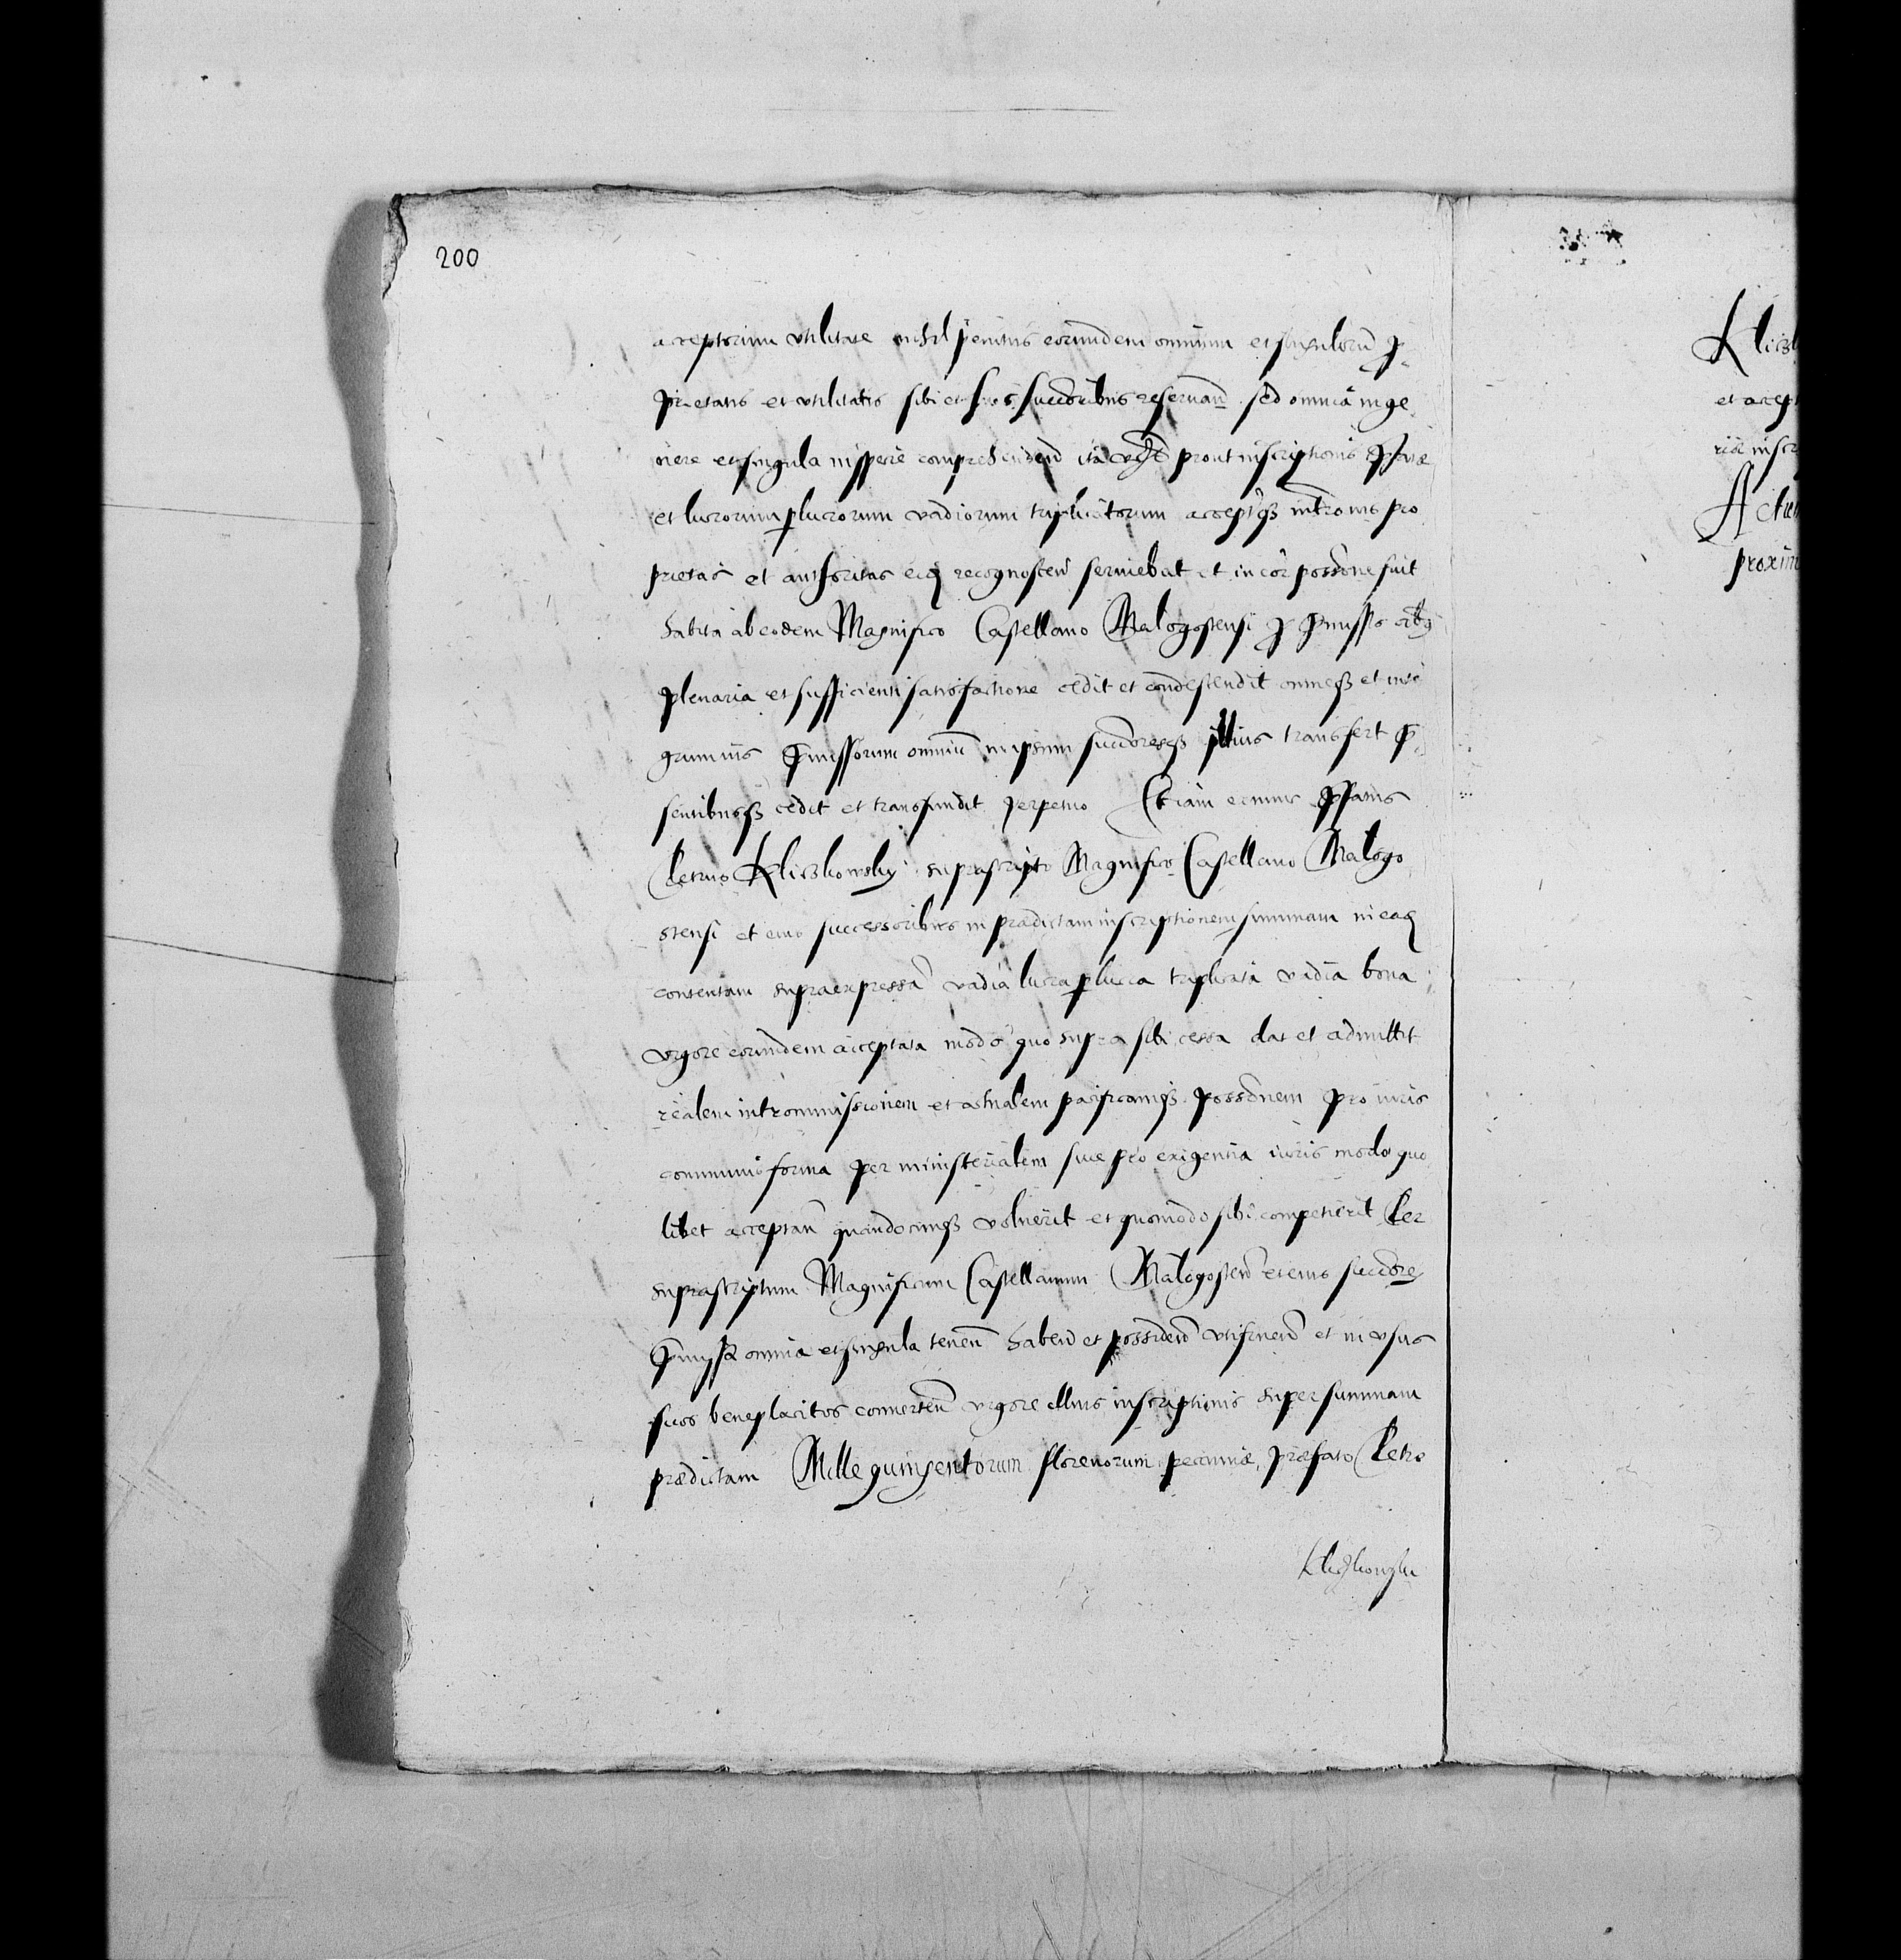 200
acceptorum utilitate nihil penitus eorundem omnium et singulorū p
prietatis et utilitatis sibi et suis succoribus reservan̄ sed omnia in ge
nere et singula in specie comprehenden̄ ita prout inscriptionis
et lucrorum plucrorum vadiorum triplicatorum acceptorumq3 introius pro
prietas et authoritas eidē recognoscen̄ serviebat et in eor̄ possone fuit
habita ab eodem Magnifico Castellano Malogostensi p pmissis oībꝯ
plenaria et sufficienti satisfactione cedit et condescendit omneq3 et inte
grum ius pmissorum omniū in ipsum succoresq3 illius transfert p
sentibusq3 cedit et transfundit perpetuo Etiam eīnus pffatus
Petrus Kliszkowsky suprascripto Magnifico Castellano Malogo
stensi et eius successoribus in prædictam inscriptionem summam in eadē
contentam supraexpressā vadia lucra plucra triplicata vadia bona
vigore eorundem acceptata modo quo supra sibi cessa dat et admittit
realem intromissionem et actualem pacificamq3 possonem pro iuris
communis forma per ministerialem sive pro exigentia iuris modo quo
libet acceptan̄ quandocunq3 voluerit et quomodo sibi competierit Per
suprascriptum Magnificum Castellanum Malogosten̄ et eius succores
pmissa omnia et singula tenen̄ haben̄ et possiden̄ utifruen̄ et in usus
suos beneplacitos conuerten̄ vigore illius inscriptionis super summam
prædictam Mille quingentorum florenorum pecuniæ, præfato Petro
Kliszkowsky
Klisz
et accept
riæ inscr
Actum
proxim